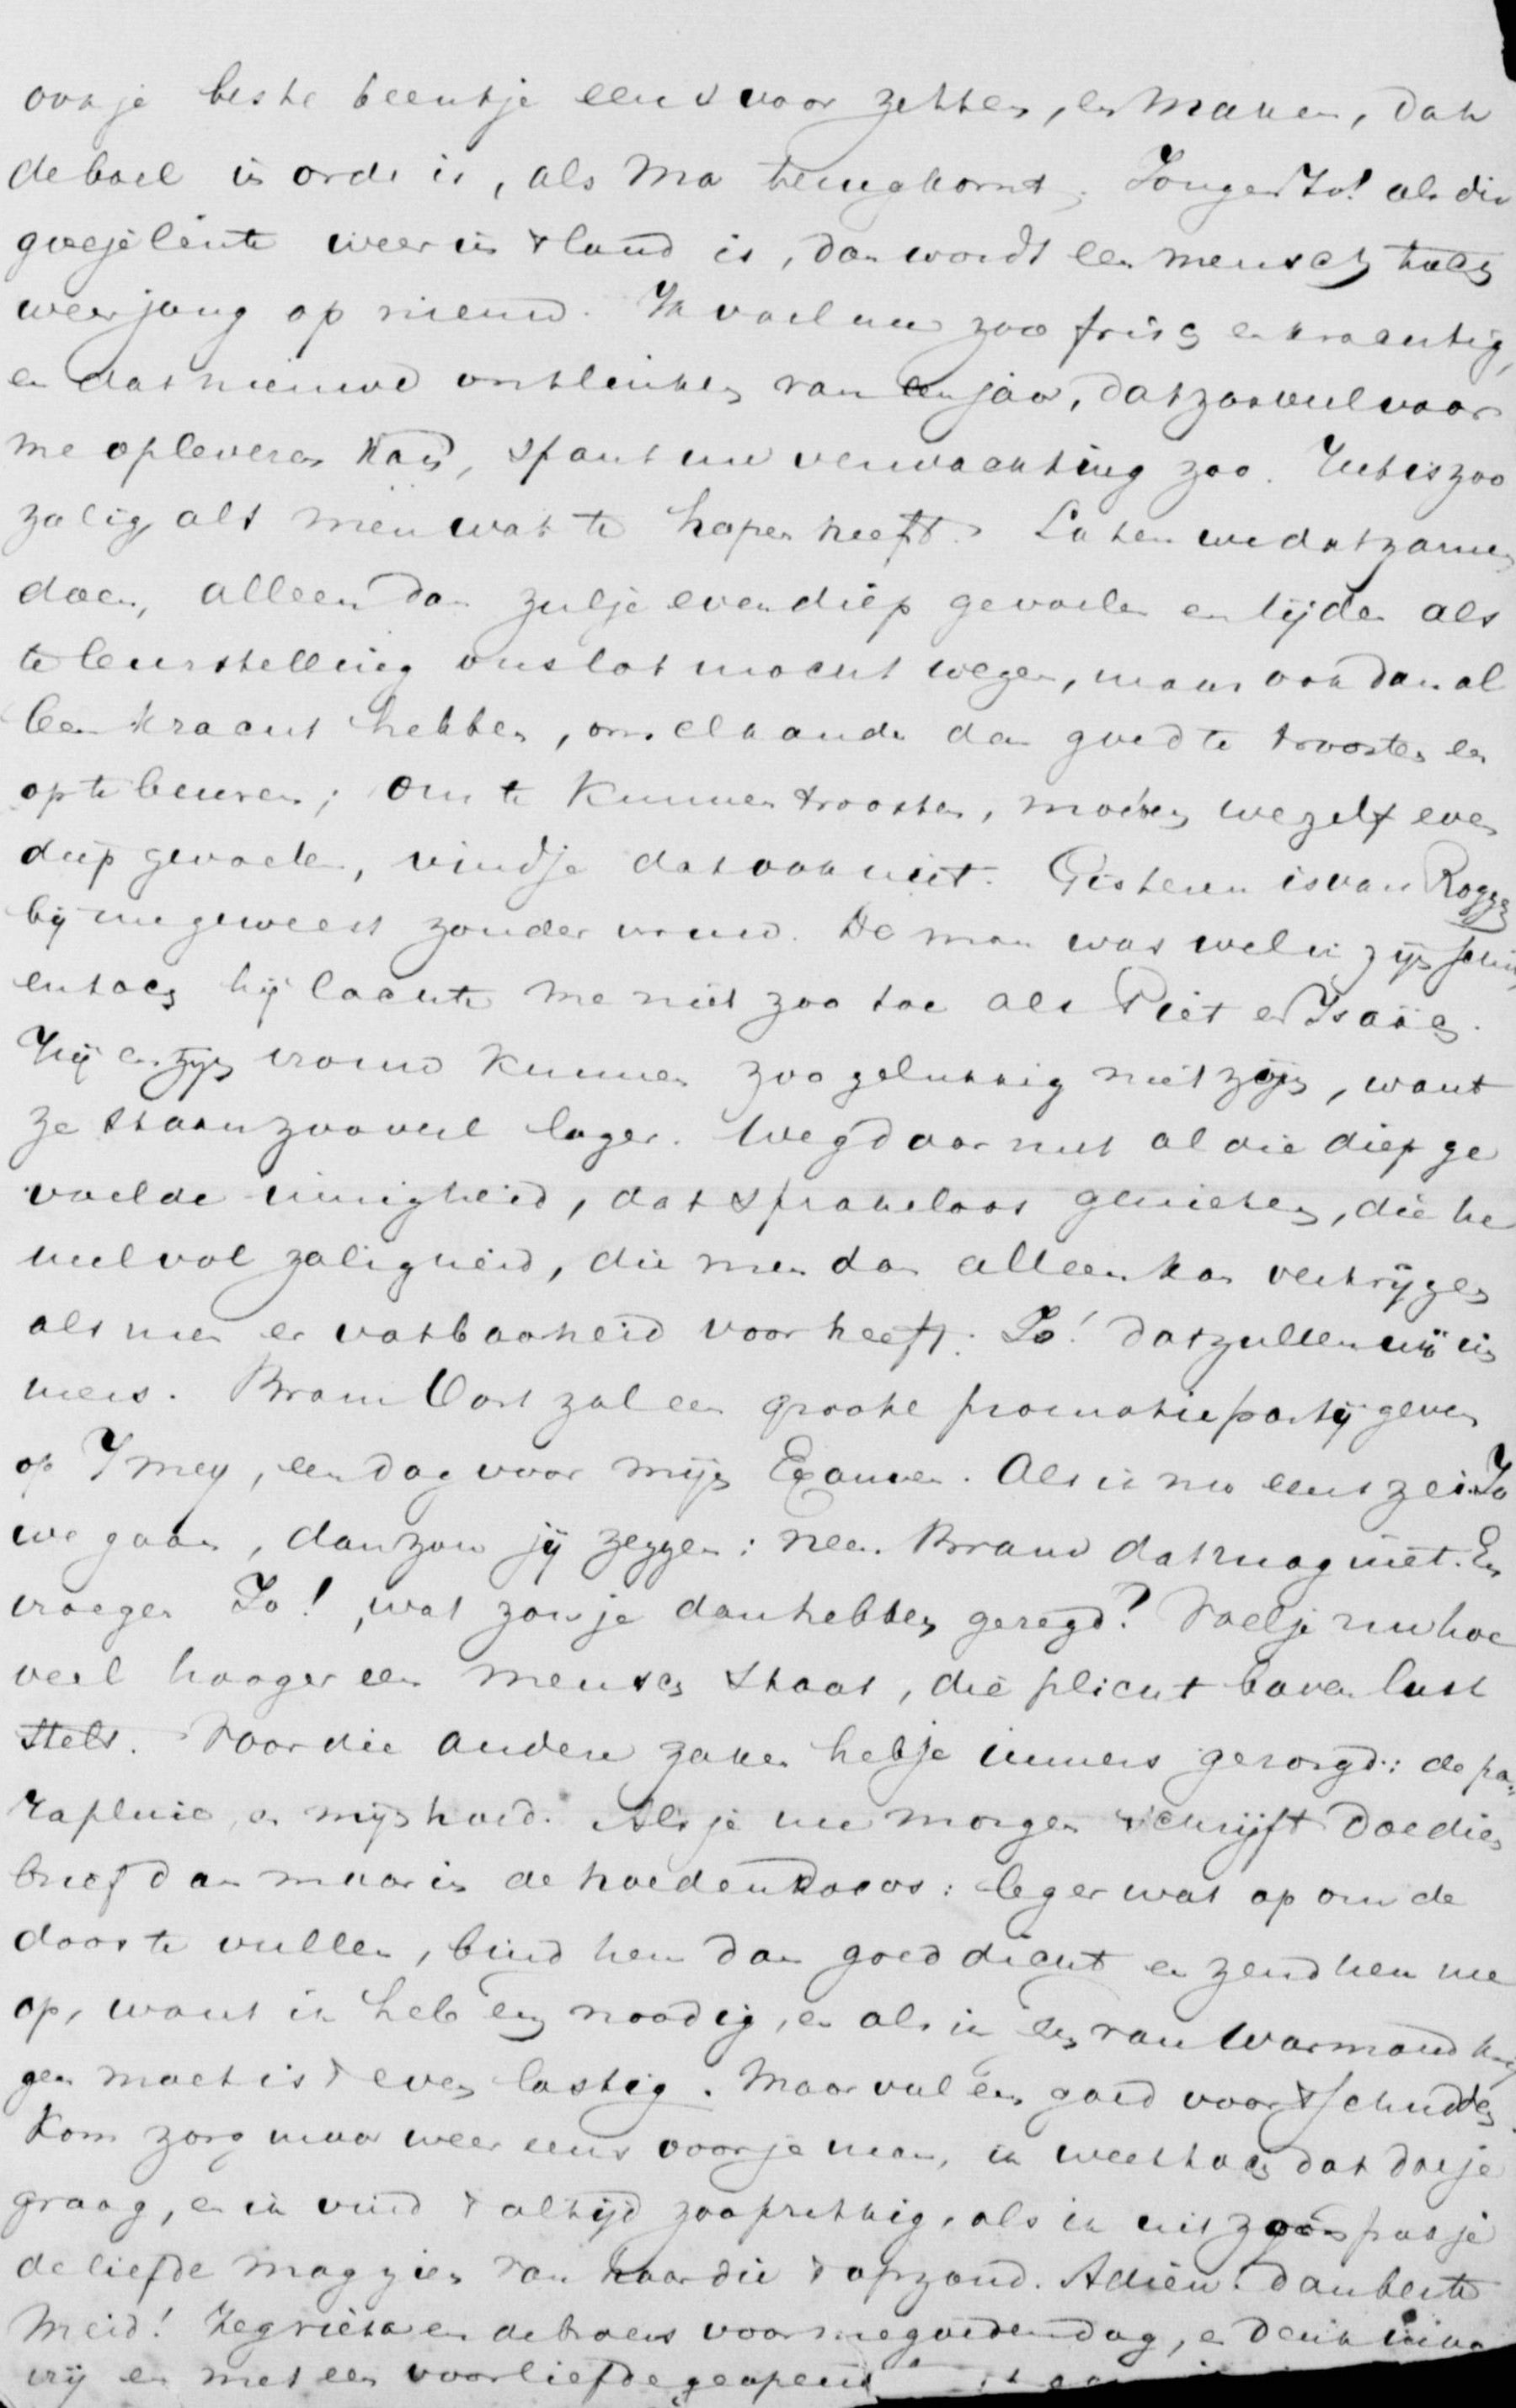 ook je beste beentje eens voor zetten, en maken, dat
de boel in orde is, als Ma terugkomt. Jongen Jo! als die
goeje lente weer in 't land is, dan wordt een mensch toch
weer jong op nieuw. Ik voel me zoo frisch en krachtig,
en dat nieuwe ontluiken van een jaar, dat zooveel voor
me opleveren kan, spant me verwachting zoo. Het is zoo
zalig als men wat te hopen heeft. Laten we dat zamen
doen, alleen dan zul je even diep gevoelen en lijden als
teleurstelling ons lot mocht wezen, maar ook dan al
leen kracht hebben, om elkaander dan goed te troosten en
op te beuren; om te kunnen troosten, moeten we zelf even
diep gevoelen, vind je dat ook niet. Gisteren is van Rogge
bij me geweest zonder vrouw. De man was wel in zijn schik
en toch hij lachte me niet zoo toe als Piet en Isaäc.
Hij en zijn vrouw kunnen zoo gelukkig niet zijn, want
ze staan zooveel lager. Weg daar met al die diep ge
voelde innigheid, dat sprakeloos genieten, die he
melvol zaligheid, die men dan alleen kan verkrijgen
als men er vatbaarheid voor heeft. Jo! dat zullen wij im
mers. Bram Oort zal een groote promotiepartij geven
op 7 mey, een dag voor mijn Examen. Als ik nu eens zei: Jo
we gaan, dan zou jij zeggen: neen Bram dat mag niet. En
vroeger Jo! wat zou je dan hebben gezegd? Voel je nu hoe
veel hooger een mensch staat, die plicht boven lust
stelt. Voor die andere zaken heb je immers gezorgd: de pa=
rapluie, en mijn hoed. Als je me morgen schrijft doe dien
brief dan maar in de hoedendoos: leg er wat op om de
doos te vullen, bind hem dan goed dicht en zend hem me
op, want ik heb em noodig, en als ik em van Warmond krij
gen moet is 't even lastig. Maar vul em goed voor 't schudden.
Kom zorg maar weer eens voor je man, ik weet toch dat doe je
graag, en ik vind 't altijd zoo prettig, als ik uit zoo'n pakje
de liefde mag zien van haar die 't opzond. Adieu dan beste
Meid! Zeg en de broers voor me goeden dag, en denk
vrij en met een voorliefde geopend